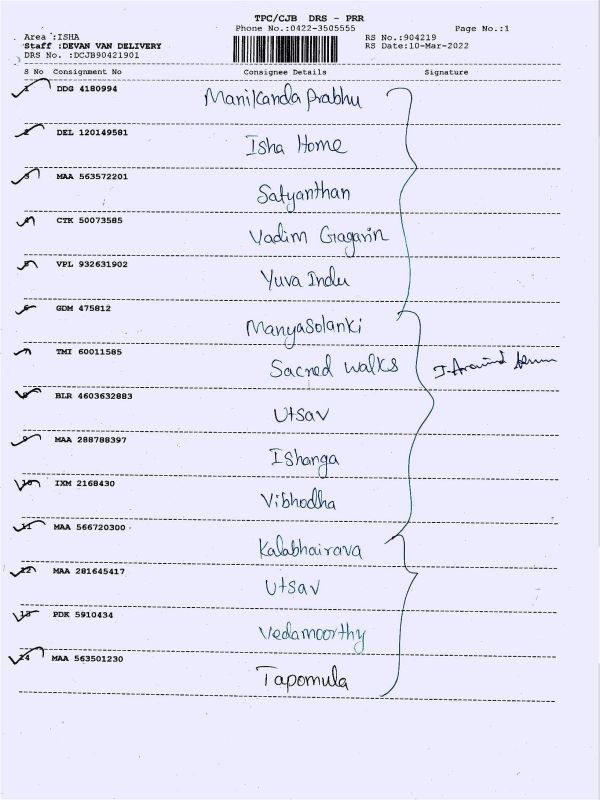 TPC/CJB DRS - PRR
Phone No.:0422-3505555 Page No.:1
Area :ISHA RS No.:904219
Staff :DEVAN VAN DELIVERY RS Date:10-Mar-2022
DRS No. :DCJB90421901
S No Consignment No Consignee Details Signature
1 DDG 4180994
Manikanda Prabhu
2 DEL 120149581
Isha Home
3 MAA 563572201
Satyanthan
4 CTK 50073585
Vadim Gagarin
5 VPL 932631902
Yuva Indu
6 GDM 475812
Manya Solanki
7 TMI 60011585
Sacred walks J. Aravind
8 BLR 4603632883
Utsav
9 MAA 288788397
Ishanga
10 IXM 2168430
Vibhodha
11 MAA 566720300
Kalabhairava
12 MAA 281645417
Utsav
13 PDK 5910434
Vedamoorthy
14 MAA 563501230
Tapomula